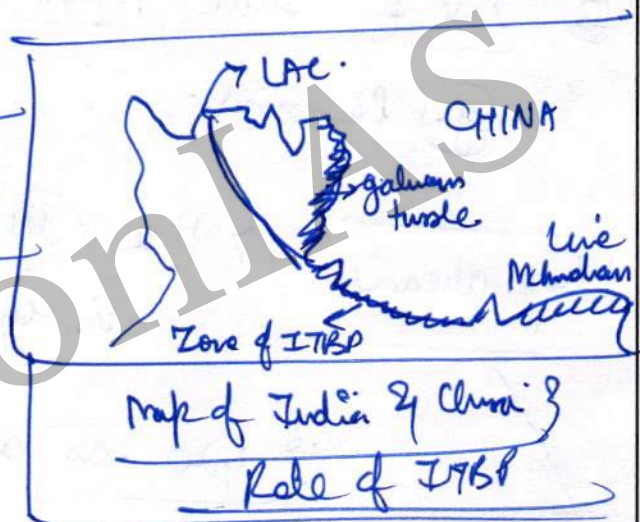 LAC.
CHINA
galwan
tussle
Line
McMahon
Zone of ITBP
Map of India & China &
Role of ITBP
onIAS